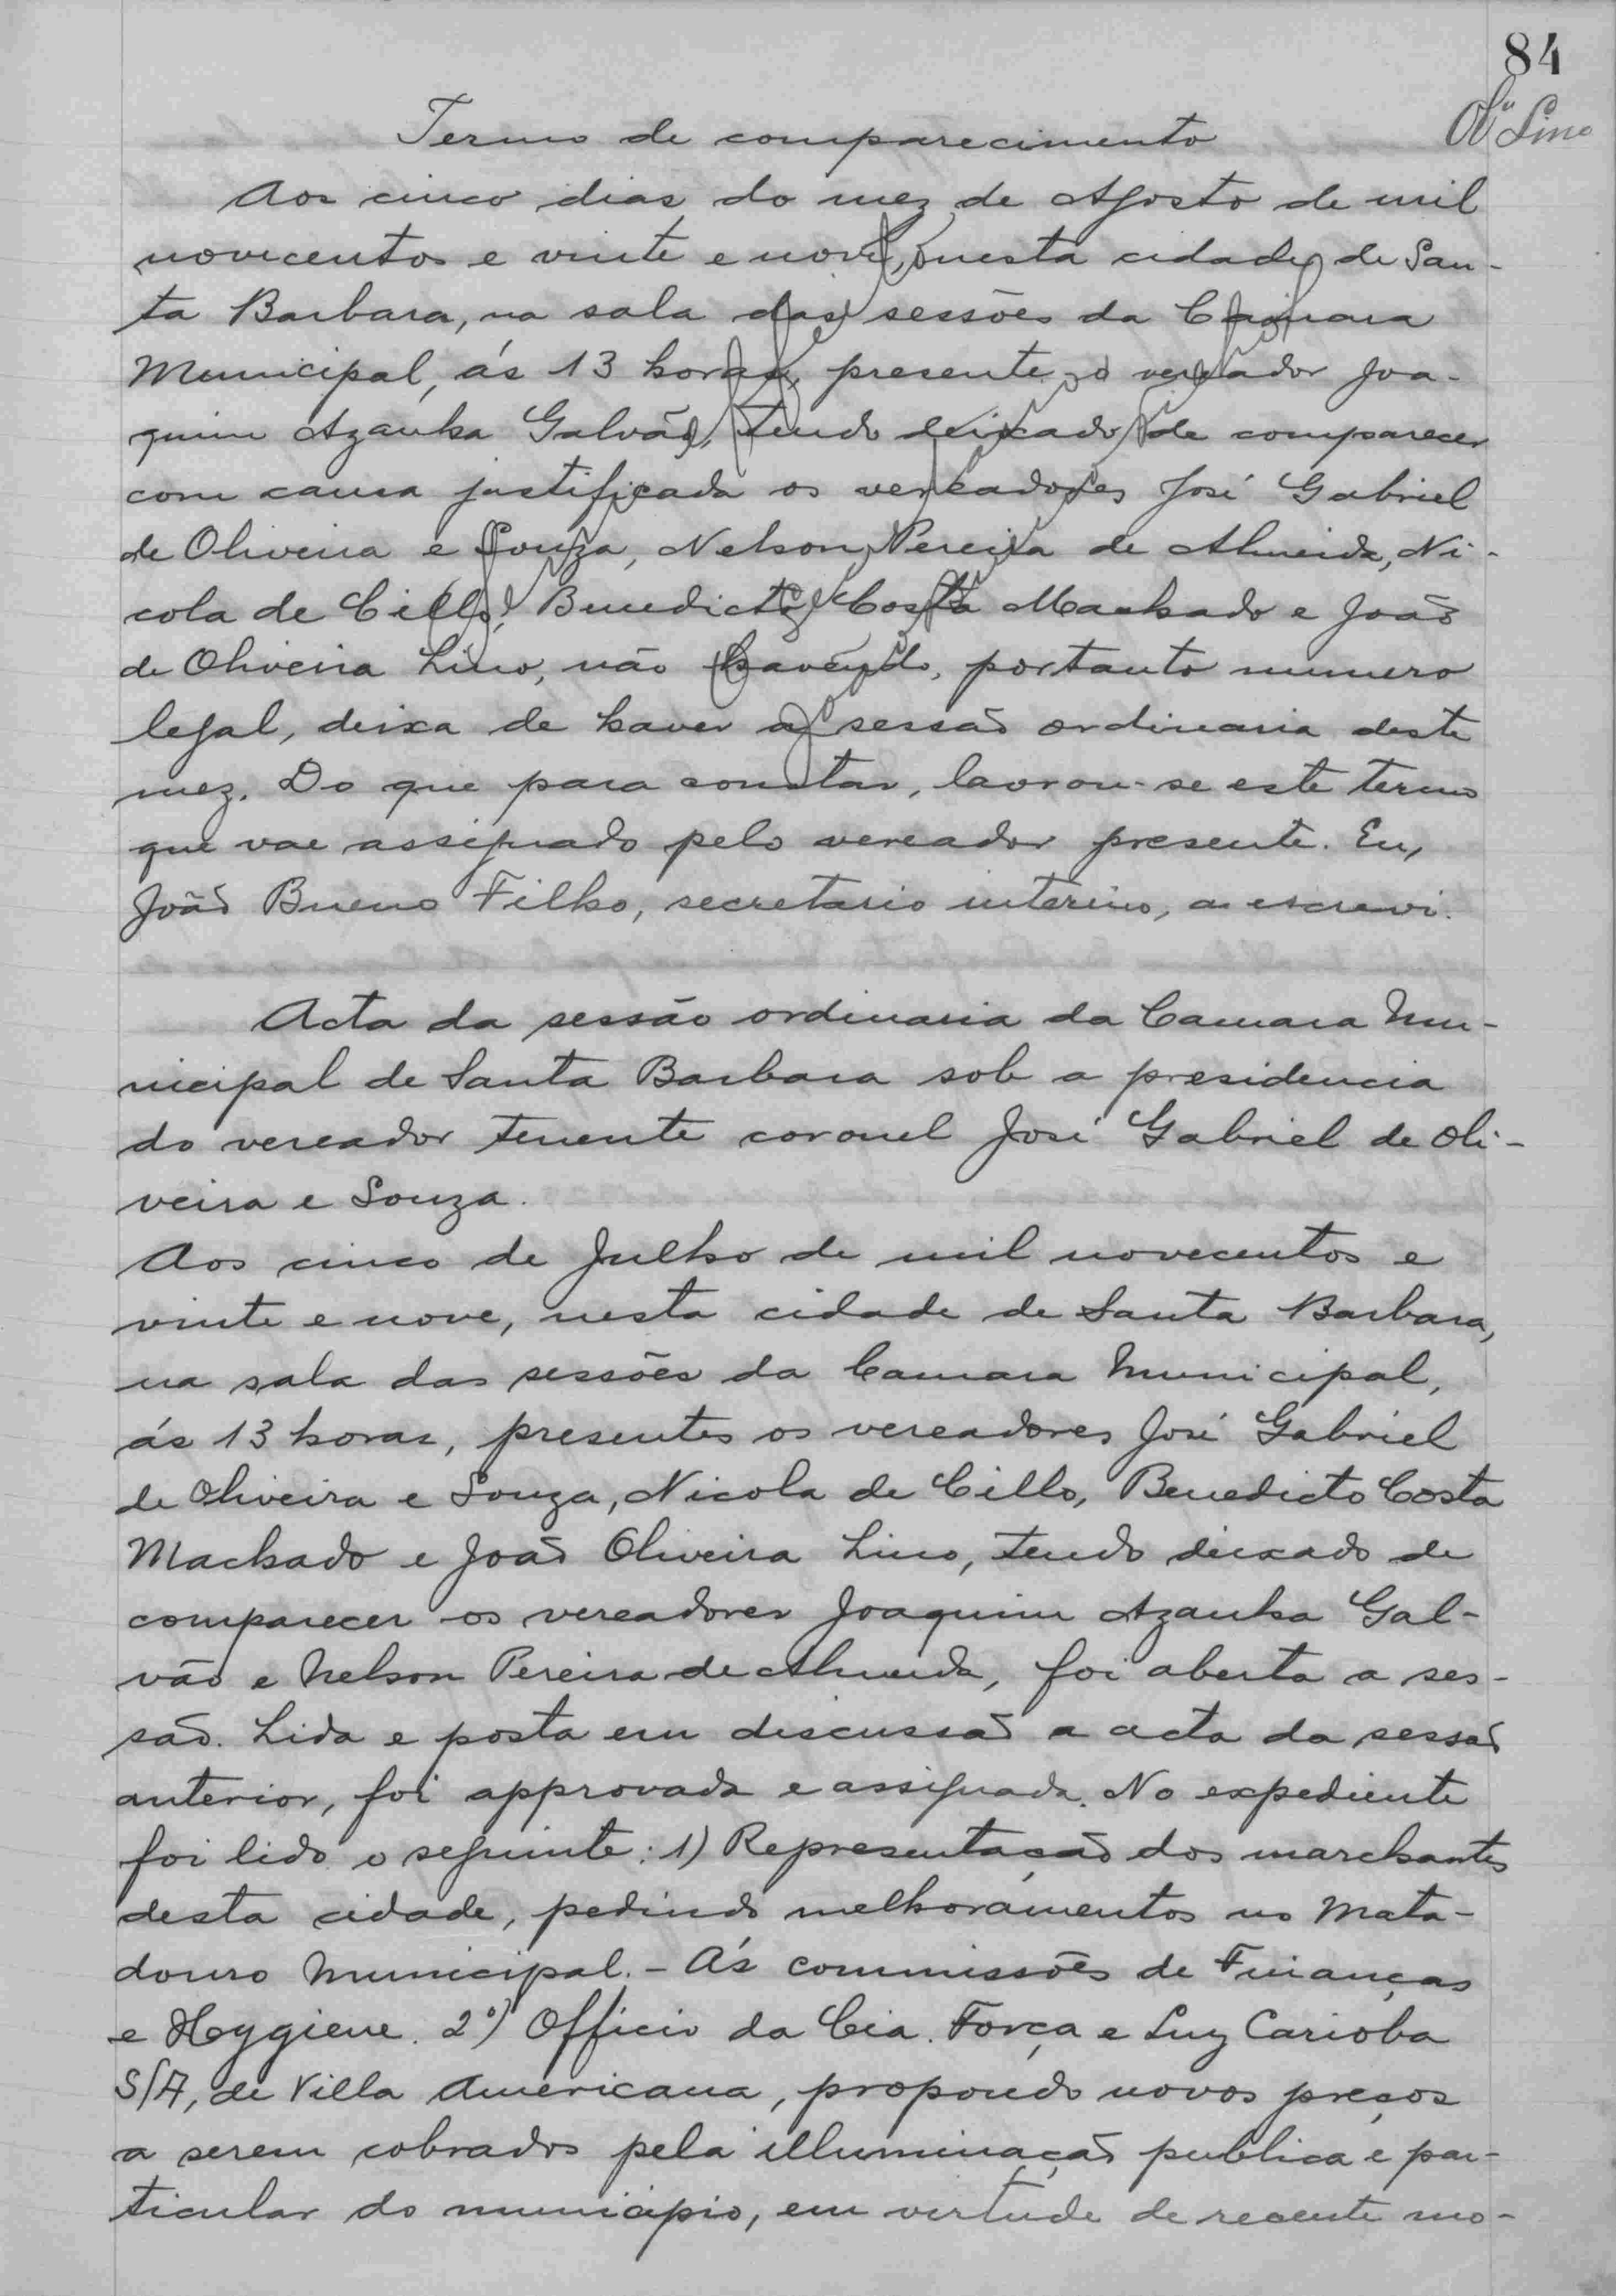 84
Lino
Termo de comparecimento
Aos cinco dias do mez de Agosto de mil
novecentos e vinte e nove, nesta cidade de San-
ta Barbara, na sala das sessões da Camara
Municipal, ás 13 horas, presente o vereador Joa-
quim Azanha Galvão, tendo deixado de comparecer
com causa justificada os vereadores José Gabriel
de Oliveira e Souza, Nelson Pereira de Almeida, Ni-
cola de Cillo, Benedicto Costa Machado e João
de Oliveira Lino, não havendo, portanto numero
legal, deixa de haver a sessão ordinaria deste
mez. Do que para constar, lavrou-se este termo
que vae assignado pelo vereador presente. Eu,
João Bueno Filho, secretario interino, a escrevi.
Acta da sessão ordinaria da Camara Mu-
nicipal de Santa Barbara sob a presidencia
do vereador tenente coronel José Gabriel de Oli-
veira e Souza.
Aos cinco de Julho de mil novecentos e
vinte e nove, nesta cidade de Santa Barbara,
na sala das sessões da Camara Municipal,
ás 13 horas, presentes os vereadores José Gabriel
de Oliveira e Souza, Nicola de Cillo, Benedicto Costa
Machado e João Oliveira Lino, tendo deixado de
comparecer os vereadores Joaquim Azanha Gal-
vão e Nelson Pereira de Almeida, foi aberta a ses-
são. Lida e posta em discussão a acta da sessão
anterior, foi approvada e assignada. No expediente
foi lido o seguinte: 1) Representação dos marchantes
desta cidade, pedindo melhoramentos no Mata-
douro Municipal. - Ás commissões de Finanças
e Hygiene. 2º) Officio da Cia. Força e Luz Carioba
S/A, de Villa Americana, propondo novos preços
a serem cobrados pela illuminação publica e par-
ticular do municipio, em virtude de recente mo-